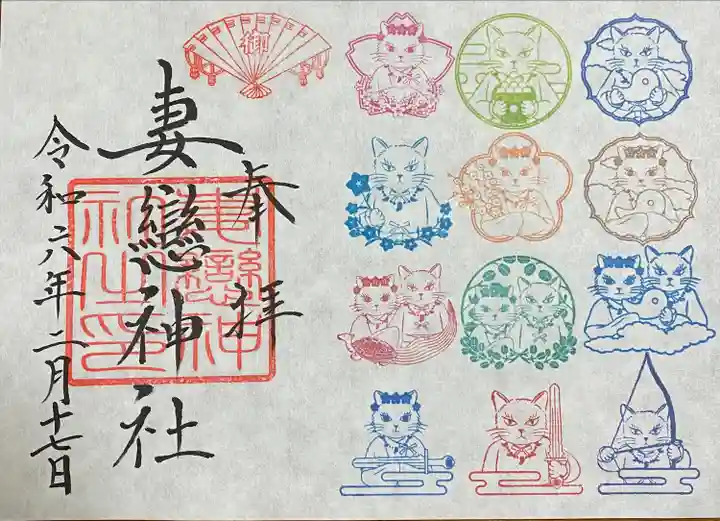 御
奉拝
妻戀神社
妻戀神社之印
令和六年二月十七日